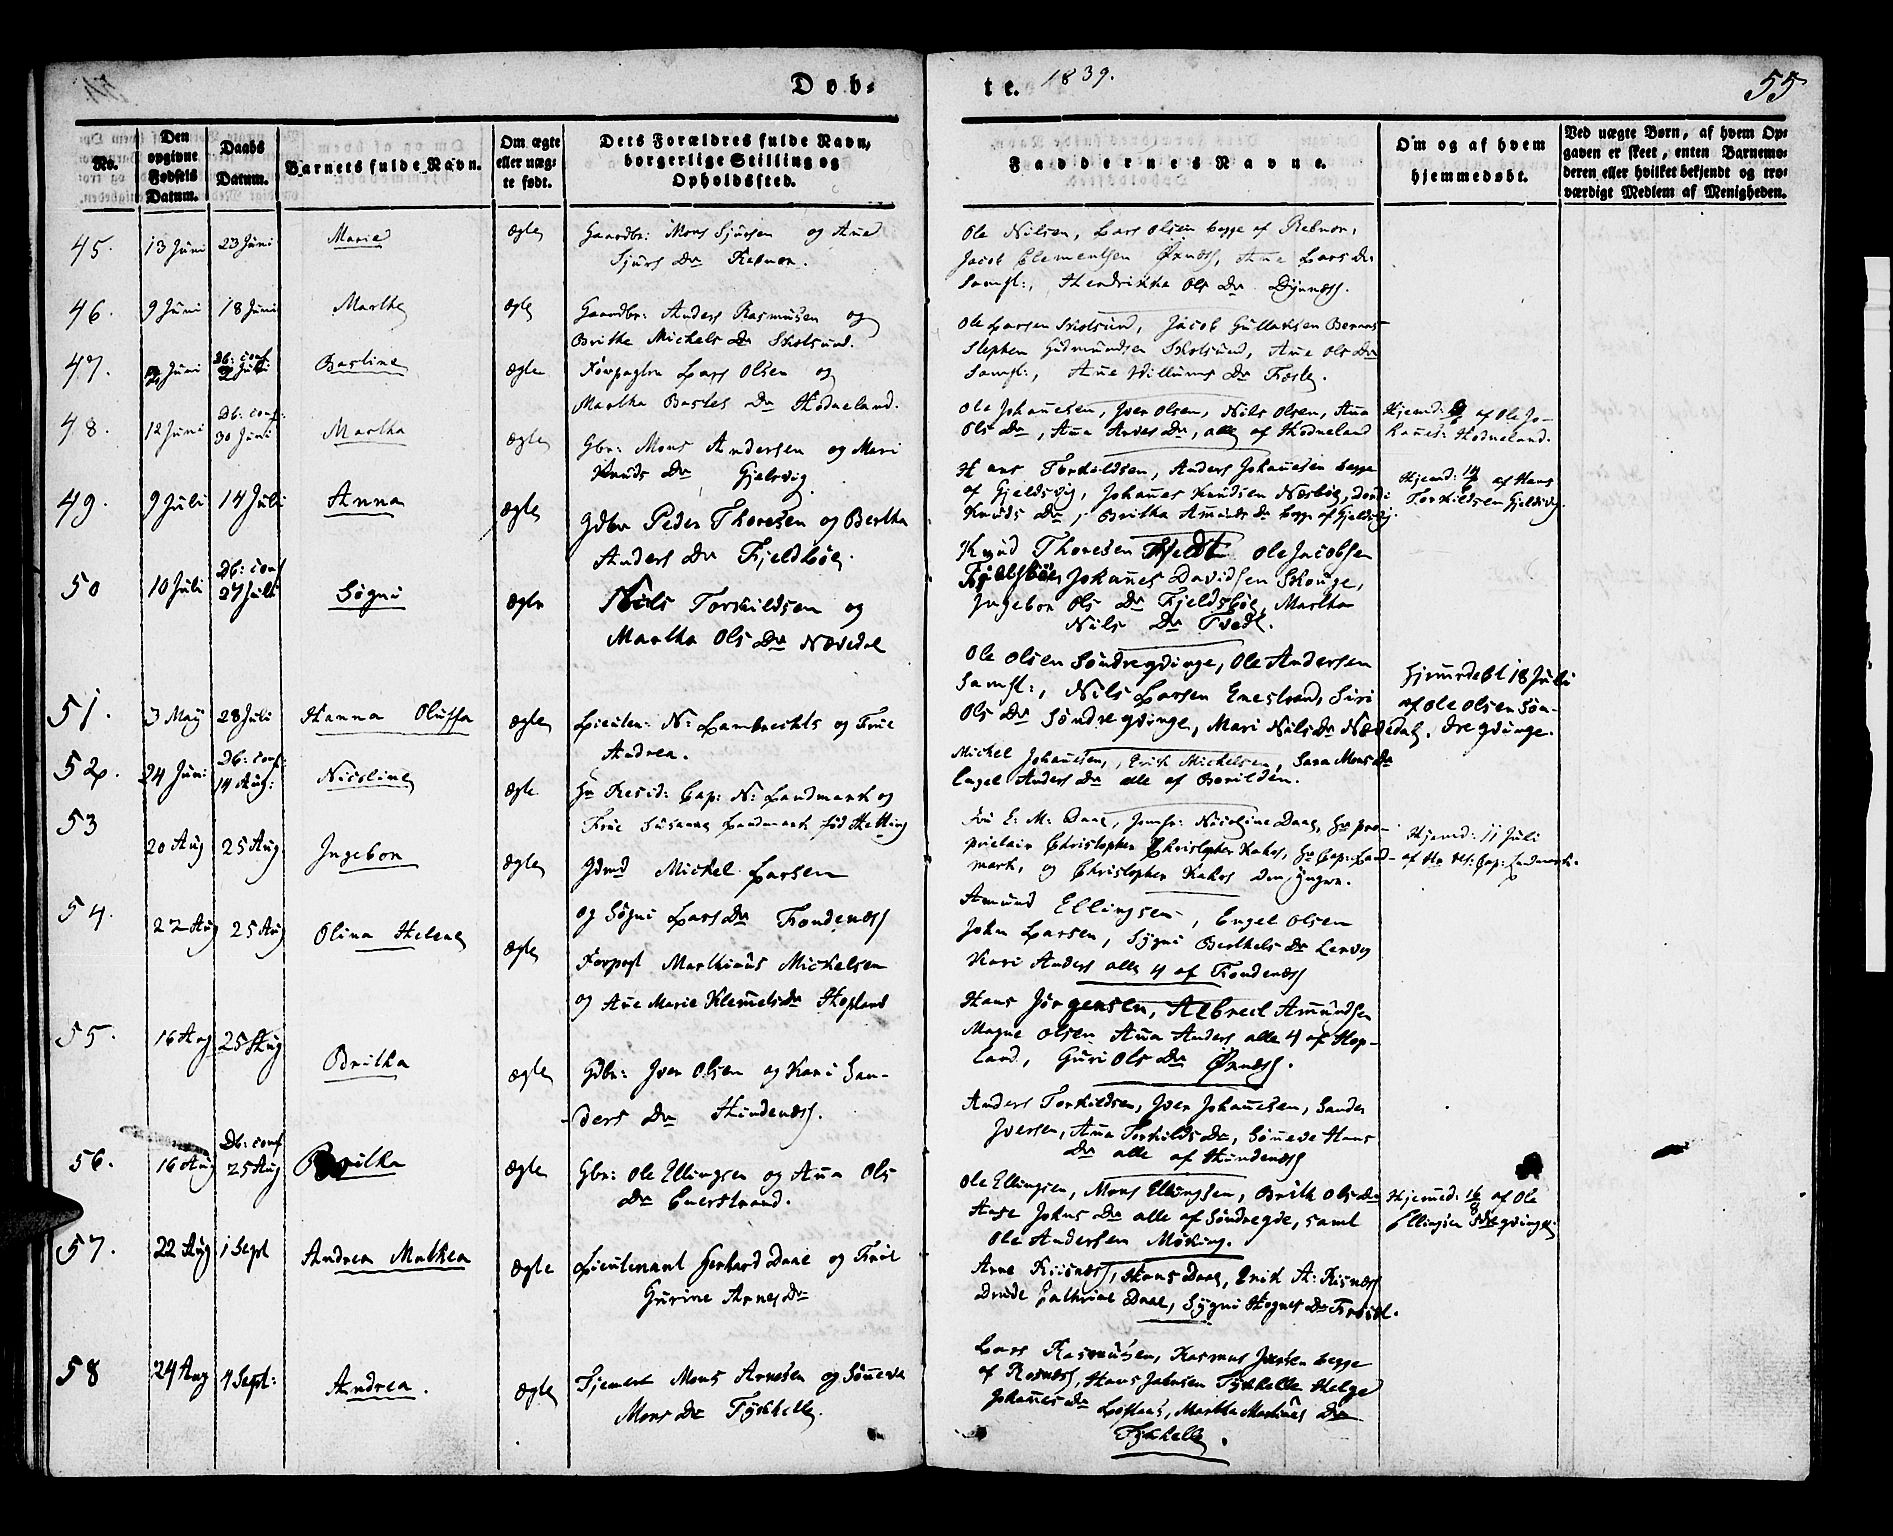 Døb-
te. 1839.
55
No.
Den opgivne Fødsels Datum.
Daabs Datum.
Barnets fulde Navn.
Om ægte eller uægte født.
Dets Forældres fulde Navn, borgerlige Stilling og Opholdssted.
Faddernes Navne.
Om og af hvem hjemmedøbt.
Ved uægte Børn, af hvem Opgaven er skeet, enten Barnemoderen eller hvilket bekjendt og troværdigt Medlem af Menigheden.
45. 13 Juni 23 Juni Marie ægte Gaardbr: Mons Sjursen og Ane
Sjurs Dr
Ole Nilsen, Lars Olsen begge af
Jacob Clementsen Ørnæss, Ane Lars Dr
Samst:, Hendrikka Ols Dr Dyrnæss.
46. 9 Juni 18 Juni Marthe ægte Gaardbr: Anders Rasmusen og
Brithe Michels Dr Skolsund.
Ole Larsen Skolsund, Jacob Gullaksen
Stephen Gudmundsen Skolsund, Ane Ols Dr
Samst:, Ane Willums Dr
47. Juni Db: conf Juli Bastine ægte Lars Olsen og
Martha Bastes Dr Hodneland.
Ole Johanesen, Iver Olsen, Nils Olsen, Ana
Ols Dr, Ana Arnes Dr, alle af Hodneland
Hjemd: af Ole Jo-
hanes: Hodneland.
48. 12 Juni Db: conf: 30 Juni Martha ægte Gbr: Mons Andersen og Mari
Knuds Dr Gjelsvig.
Hans Torkildsen, Anders Johanesen begge
af Gjeldsvig, Johanes Knudsen Næsbøe,
Knuds Dr, Britha Amunds Dr begge af Gjeldsvig.
Hjemd: 14/6 af Hans
Torkildsen Gjeldsvig.
49. 9 Juli 14 Juli Anna ægte Gdbr Peder Thoresen og Bertha
Anders Dr Fjeldsbøe.
Knud Thoresen Ole Jacobsen
Fjelsbøe, Johanes Davidsen Skouge,
Ingebor Ols Dr Fjeldsbøe, Martha
Nils Dr Tvedt.
50 10 Juli Db: conf 27 Juli Søgni ægte Nils Torkildsen og
Martha Ols Dr Nævedal
Ole Olsen Søndregdinge, Ole Andersen
Samst:, Nils Larsen Enestrand, Siri
Ols Dr Søndregdinge, Mari Nils Dr Nævedal.
Hjemdøbt 18 Juli
af Ole Olsen Søn-
dregdinge.
51. 3 Maij 28 Juli Hanna Oluffa ægte Lieuten: N: Lambrechts og Frue
Andrea.
Michel Johanesen, Erich Michelsen, Sara Mons Dr
Engel Anders Dr alle af
52. 24 Juni Db: conf: 14 Aug: Nicoline ægte Hr Resid: Cap: N: Landmark og
Frue Susanne Landmark fød Hetting
Fru E: M: Daae, Jomfr: Nicoline Daae, Hr pro-
prietair Christopher Kahrs, Hr Cap: Land-
mark, og Christopher Kahrs den yngre.
Hjemd: 11 Juli
af Hr Res: Cap: Landmark.
53 20 Aug 25 Aug Ingebor ægte Gdmd Michel Larsen
og Søgni Lars Dr Tondenæss
Amund Ellingsen, Engel Olsen
John Larsen, Sygni Berthels Dr Lervig
Kari Anders alle 4 af Tondenæss
54. 22 Aug 25 Aug Olina Helene ægte Forpagt Mathias Michelsen
og Ane Marie Klemets Dr Hopland
Hans Jørgensen, Albrecht Amundsen
Magne Olsen Ana Anders alle 4 af Hop-
land, Guri Ols Dr Ørnæss.
55. 16 Aug 25 Aug Britha ægte Gdbr: Iver Olsen og Kari San-
ders Dr Hindenæss.
Anders Torkildsen, Iver Johanesen, Sander
Iversen, Ana Torkilds Dr, Søneve Hans
Dr alle af Hindenæss
56. 16 Aug Db: conf 25 Aug Britha ægte Gbr: Ole Ellingsen og Ana Ols
Dr Enerstrand.
Ole Ellingsen, Mons Ellingsen, Brith Ols Dr
Johns Dr alle af Søndregde, samt
Ole Andersen Møking.
Hjemed: 16/8 af Ole
Ellingsen
57. 22 Aug 1 Sept Andrea Mathea ægte Lieutenant Gerhard Daae og Frue
Gurine Arnes Dr
Arne Risnæss, Hans Daae, Erik A: Risnæss
Drude Cathrine Daae, Sygni Hognes Dr
58 24 Aug 4 Sept: Andrea. ægte Tjener Mons Arnesen og Søneva
Mons Dr Tykhelle.
Lars Rasmusen, Rasmus begge
af Risnæss, Hans Jahnsen Tykhelle Helge
Johanes Dr Loftaas, Martha Martines Dr
Tykhelle.